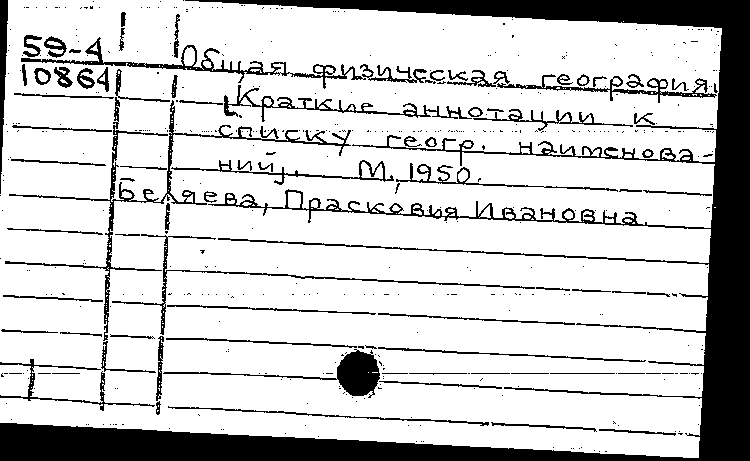 59-4
10864
Общая физическая география.
[Краткие аннотации к
списку геогр. наименова-
ний]. М., 1950.
Беляева, Прасковья Ивановна.